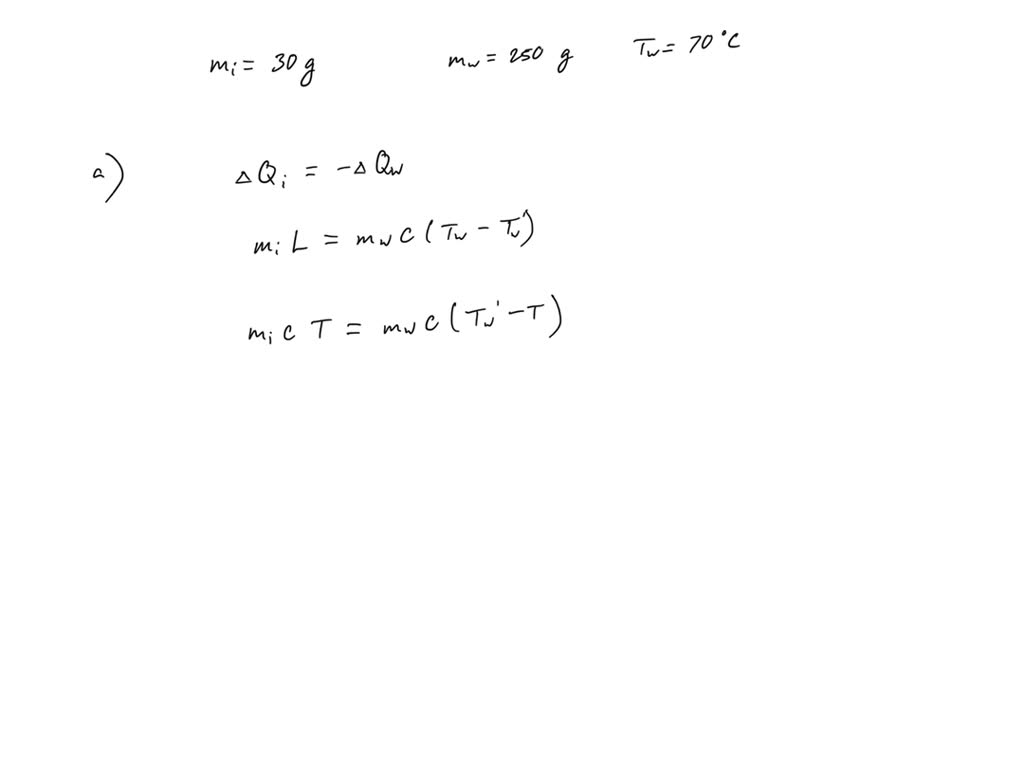 mᵢ = 30 g m_w = 250 g T_w = 70 °C
a) ΔQᵢ = -ΔQ_w
mᵢ L = m_w c (T_w - T_w')
mᵢ c T = m_w c (T_w' - T)